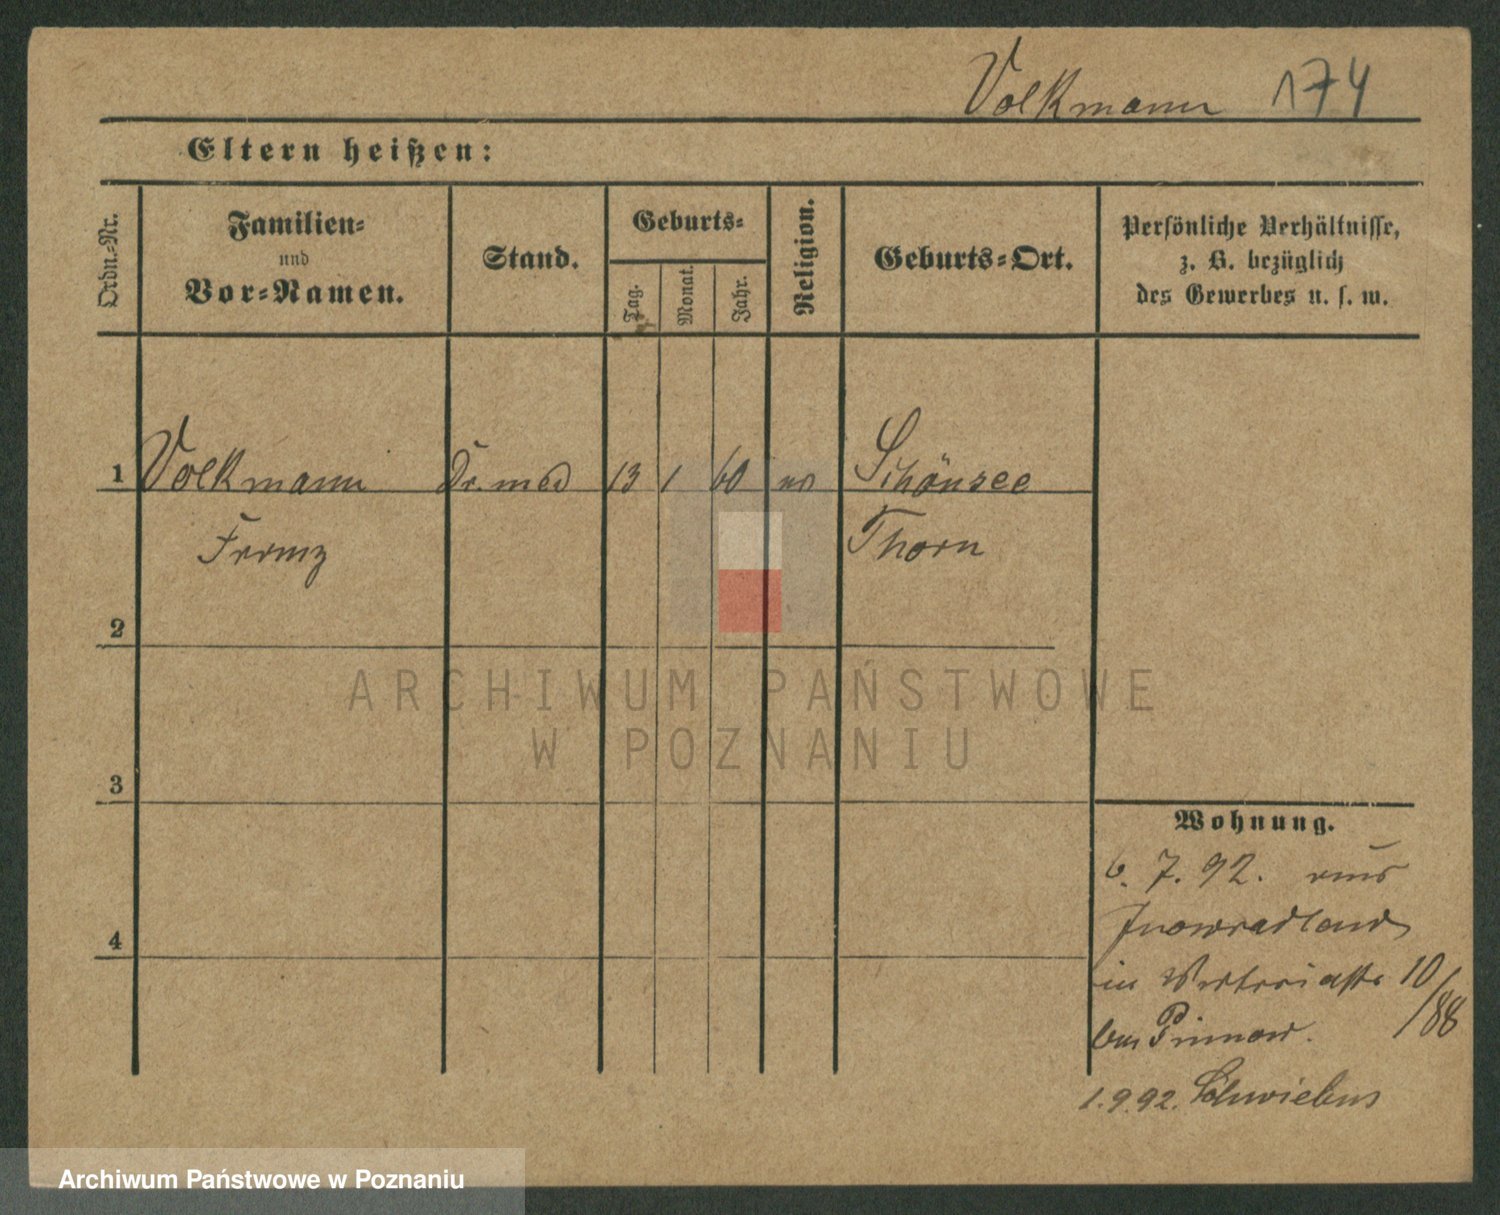 Volkmann 174
Eltern heißen:
Ordn.-Nr.
Familien-
und
Vor-Namen.
Stand.
Geburts-
Tag.
Monat.
Jahr.
Religion.
Geburts-Ort.
Persönliche Verhältnisse,
z. B. bezüglich
des Gewerbes u. s. w.
1 Volkmann Dr. med 13 1 60 Schönsee
Franz Thorn
2
3
4
Wohnung.
6. 7. 92. aus
in 10/88
bei
1.9.92. Schwiebus
ARCHIWUM PAŃSTWOWE
W POZNANIU
Archiwum Państwowe w Poznaniu